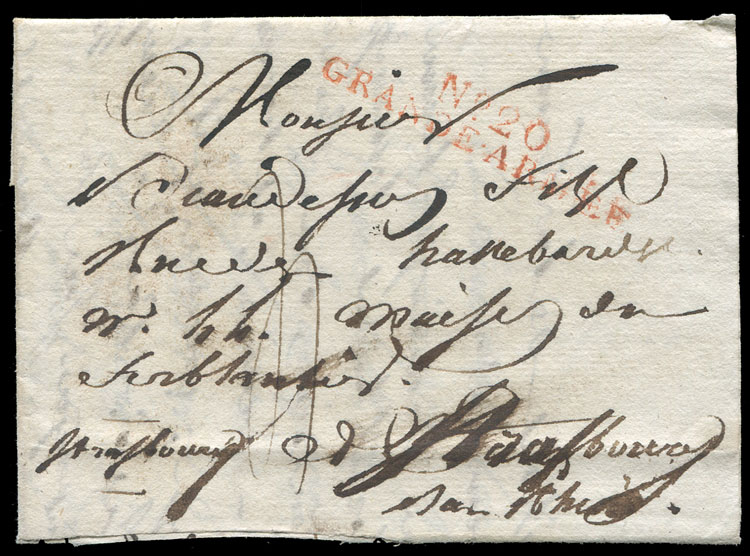 Nº. 20
GRANDE-ARMÉE
Monsieur
fils
Rue des hallebardes.
nº. 44. maison du
ferblantier.
Strasbourg à Strasbourg
Bas Rhin.